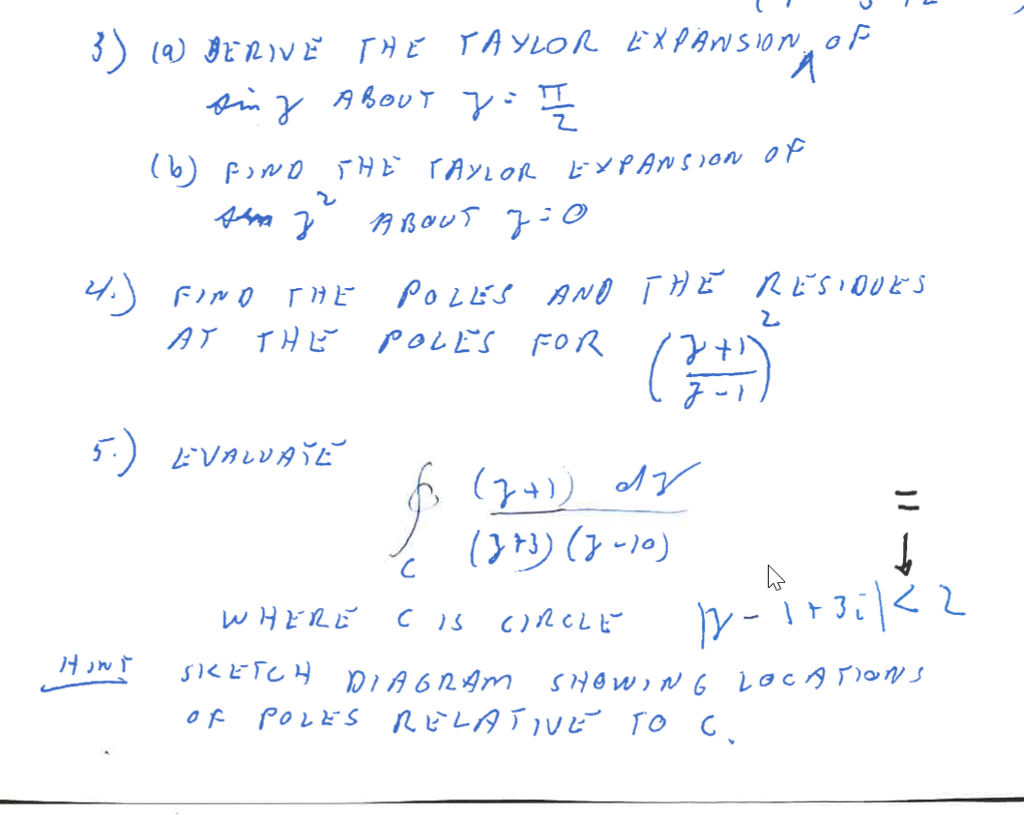 3) (a) DERIVE THE TAYLOR EXPANSION OF
sin z ABOUT z = π/2
(b) FIND THE TAYLOR EXPANSION OF
sin z² ABOUT z = 0
4.) FIND THE POLES AND THE RESIDUES
AT THE POLES FOR ((z+1)/(z-1))²
5.) EVALUATE
∮_C (z+1) dz / (z+3)(z-10)
=
↓
WHERE C IS CIRCLE |z - 1 + 3i| < 2
HINT SKETCH DIAGRAM SHOWING LOCATIONS
OF POLES RELATIVE TO C.